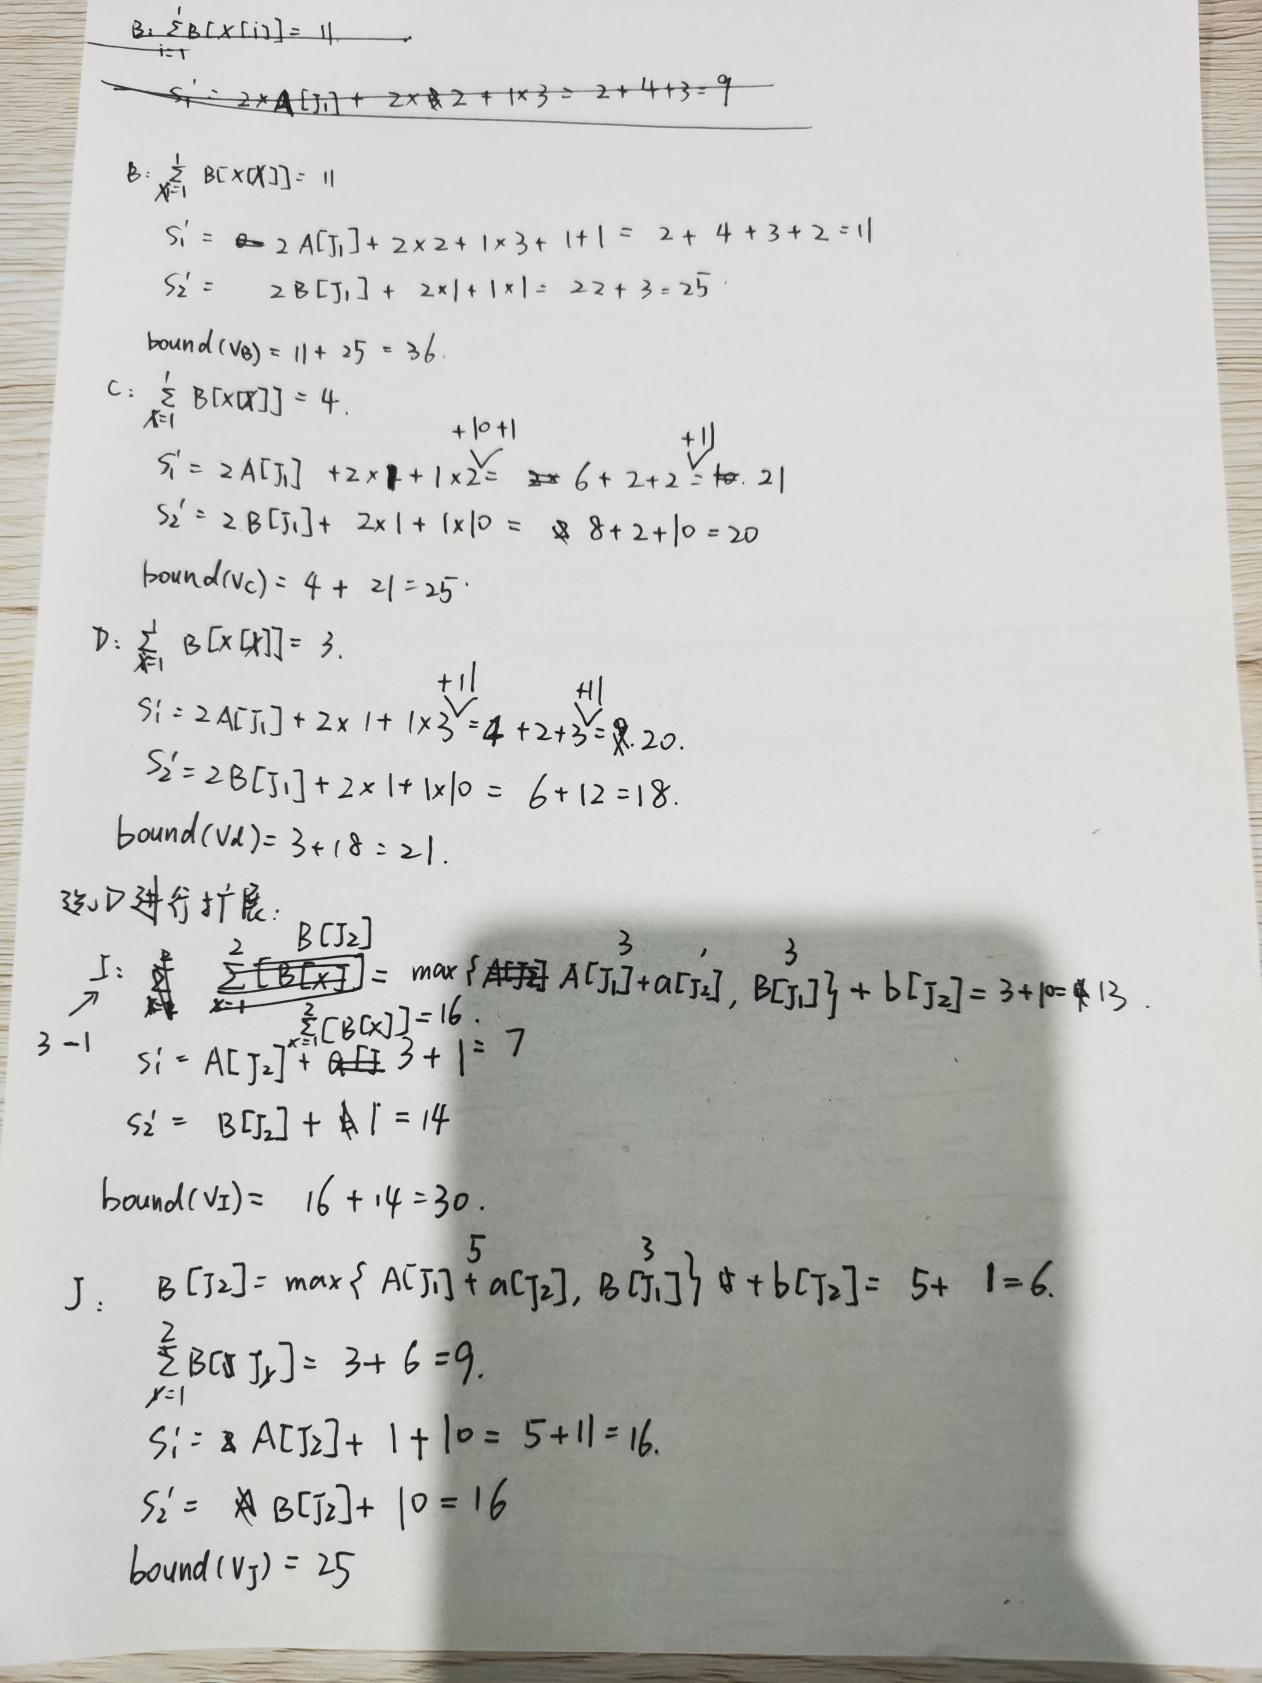 B: Σ B[X[i]] = 11.
i=1
S₁' = 2×A[J₁] + 2×2 + 1×3 = 2+4+3=9
1
B: Σ B[X[X]] = 11
X=1
S₁' = 2A[J₁] + 2×2 + 1×3 + 1+1 = 2+4+3+2=11
S₂' = 2B[J₁] + 2×1+1×1= 22+3=25.
bound(VB) = 11+25=36.
1
C: Σ B[X[X]] = 4.
X=1
+10+1 +11
S₁' = 2A[J₁] +2×1+1×2= 6+2+2= 21
S₂' = 2B[J₁]+ 2×1+1×10 = 8+2+10=20
bound(VC) = 4+21=25.
1
D: Σ B[X[X]] = 3.
X=1
+11 +11
S₁' = 2A[J₁]+2×1+1×3=4+2+3= 20.
S₂' = 2B[J₁]+2×1+1×10 = 6+12=18.
bound(Vd)= 3+18=21.
选D进行扩展:
2 B[J₂] 3 3
I: Σ[B[X]] = max{ A[J₁]+a[J₂], B[J₁]} + b[J₂] = 3+10= 13.
x=1
2
Σ[B[X]]=16.
x=1
3-1
S₁' = A[J₂] + 3+1 = 7
S₂' = B[J₂] + 1 = 14
bound(VI)= 16+14=30.
5 3
J: B[J₂] = max{ A[J₁]+a[J₂], B[J₁]} + b[J₂] = 5+ 1=6.
2
Σ B[Jx] = 3+6=9.
x=1
S₁' = A[J₂]+ 1+10= 5+11=16.
S₂' = B[J₂]+ 10=16
bound(VJ) = 25